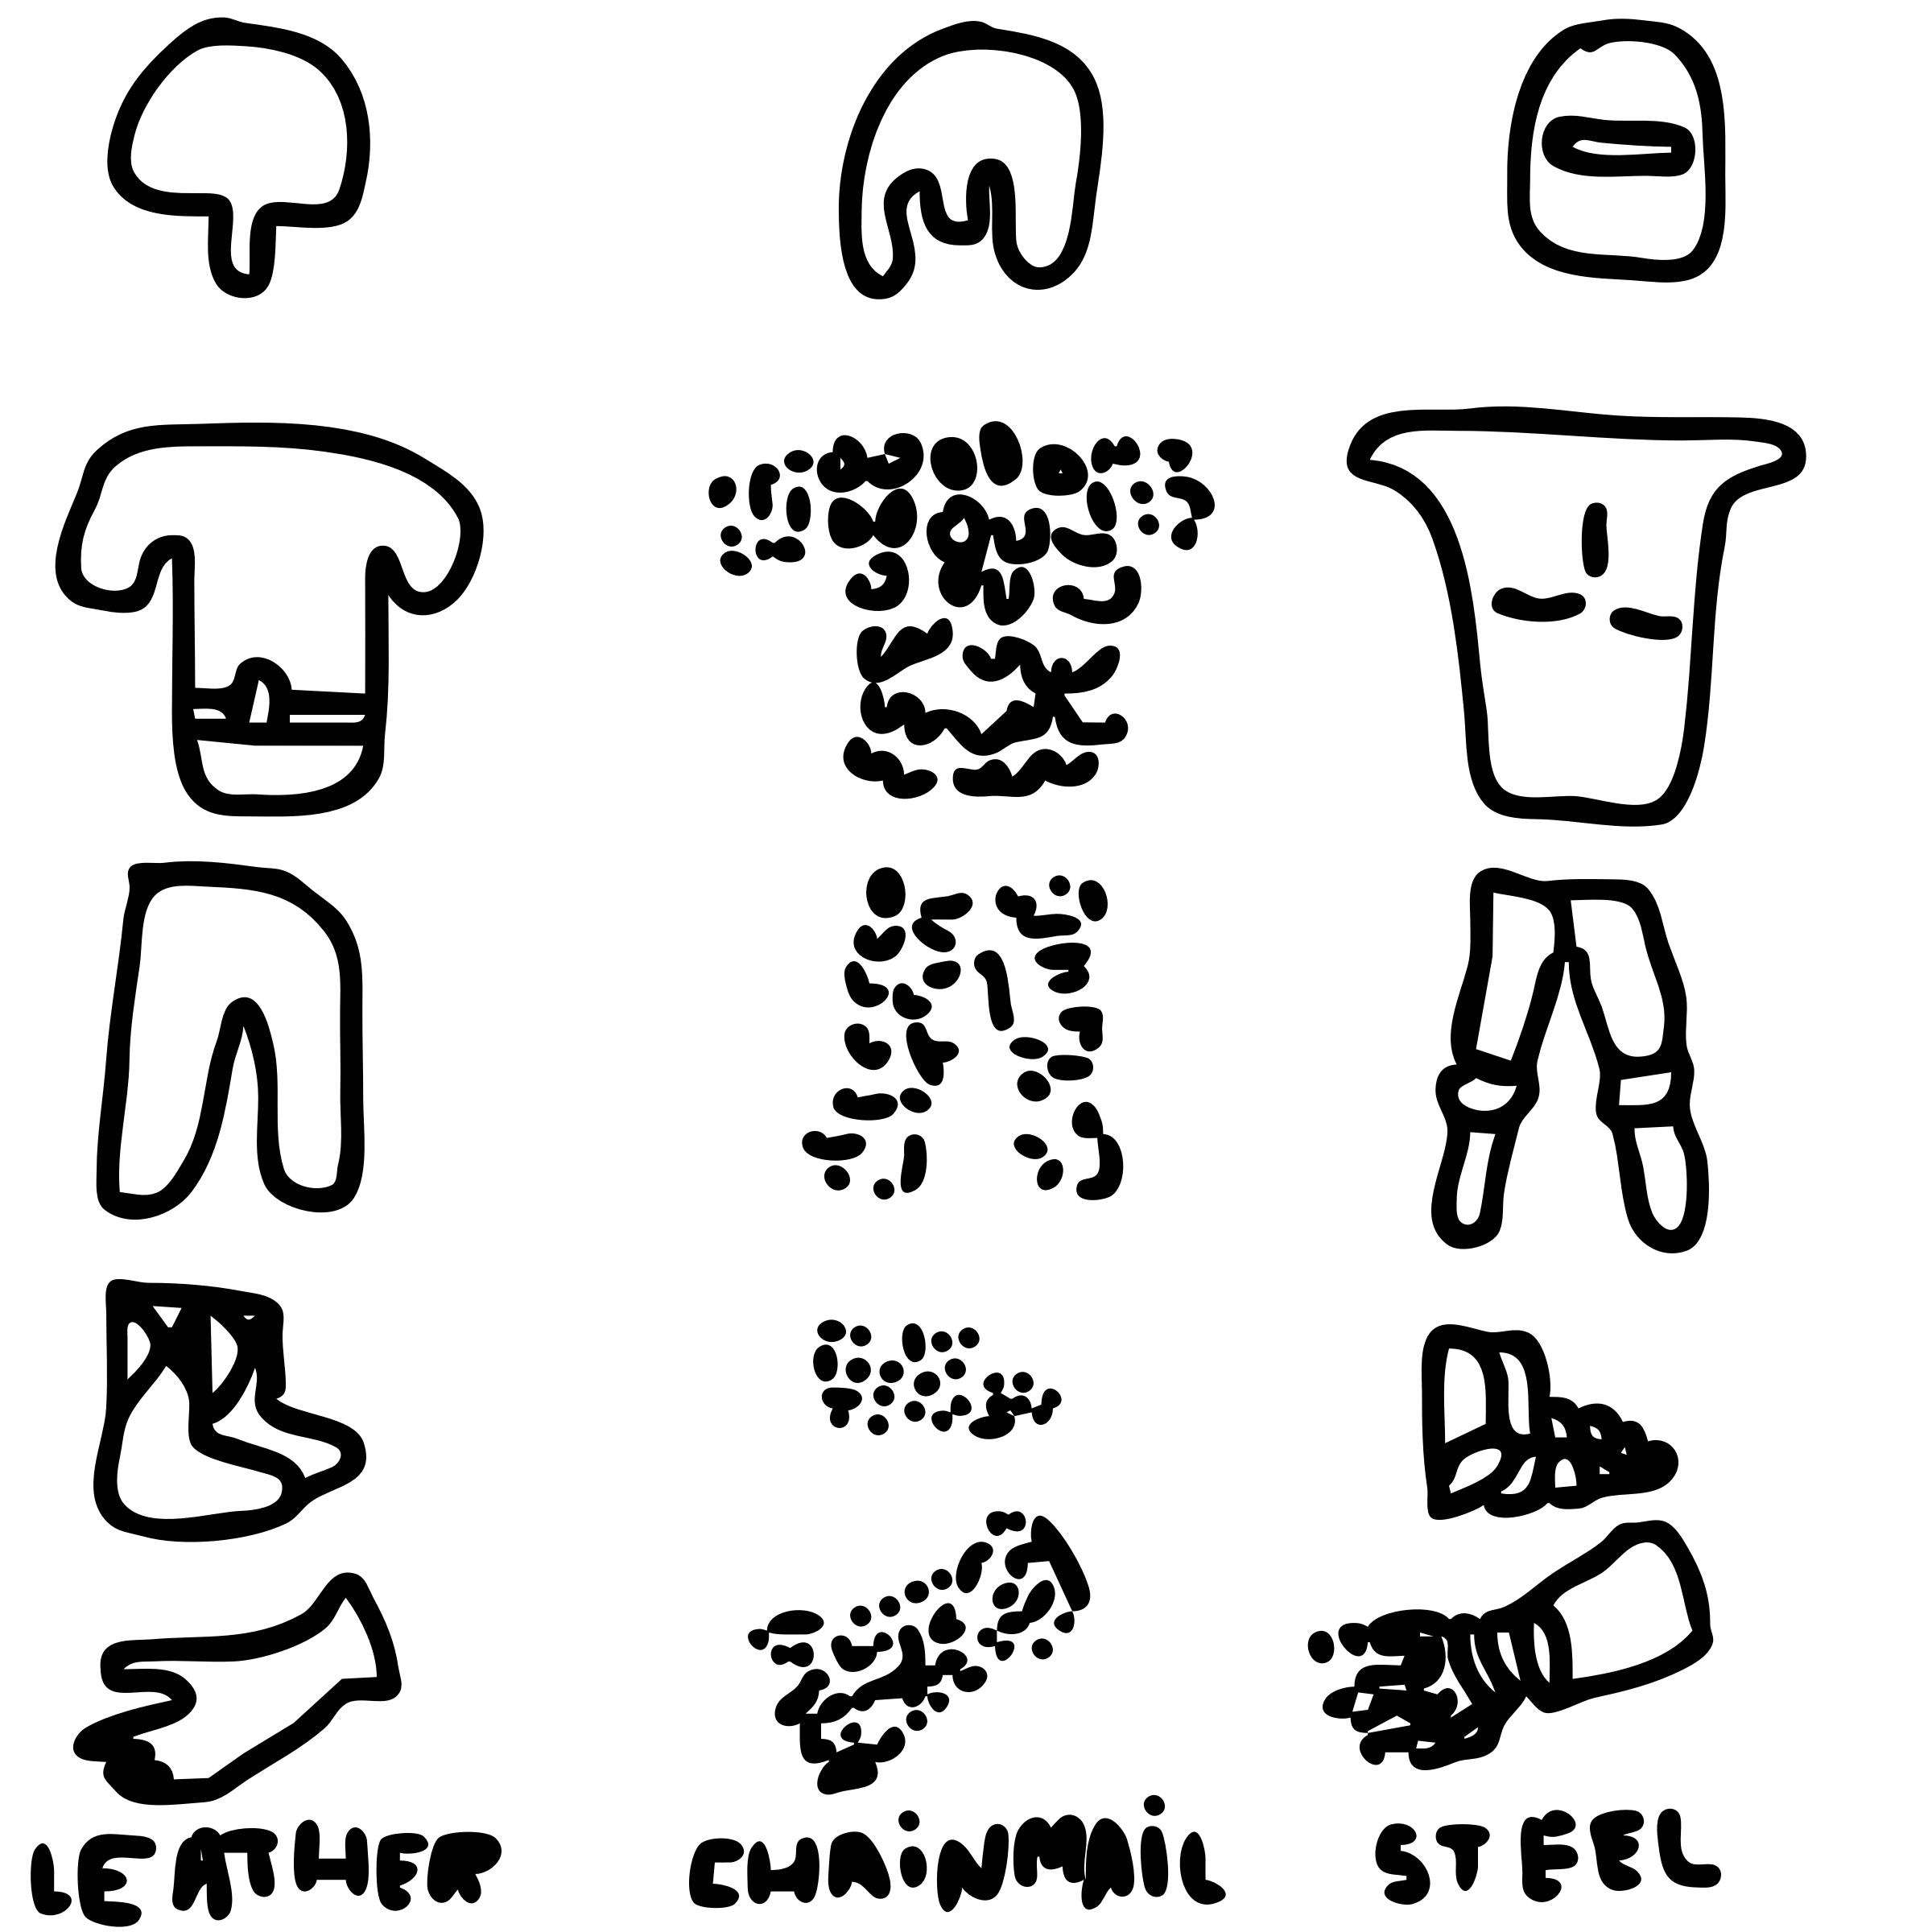 LEATHER CHAiNMAiL STEEL